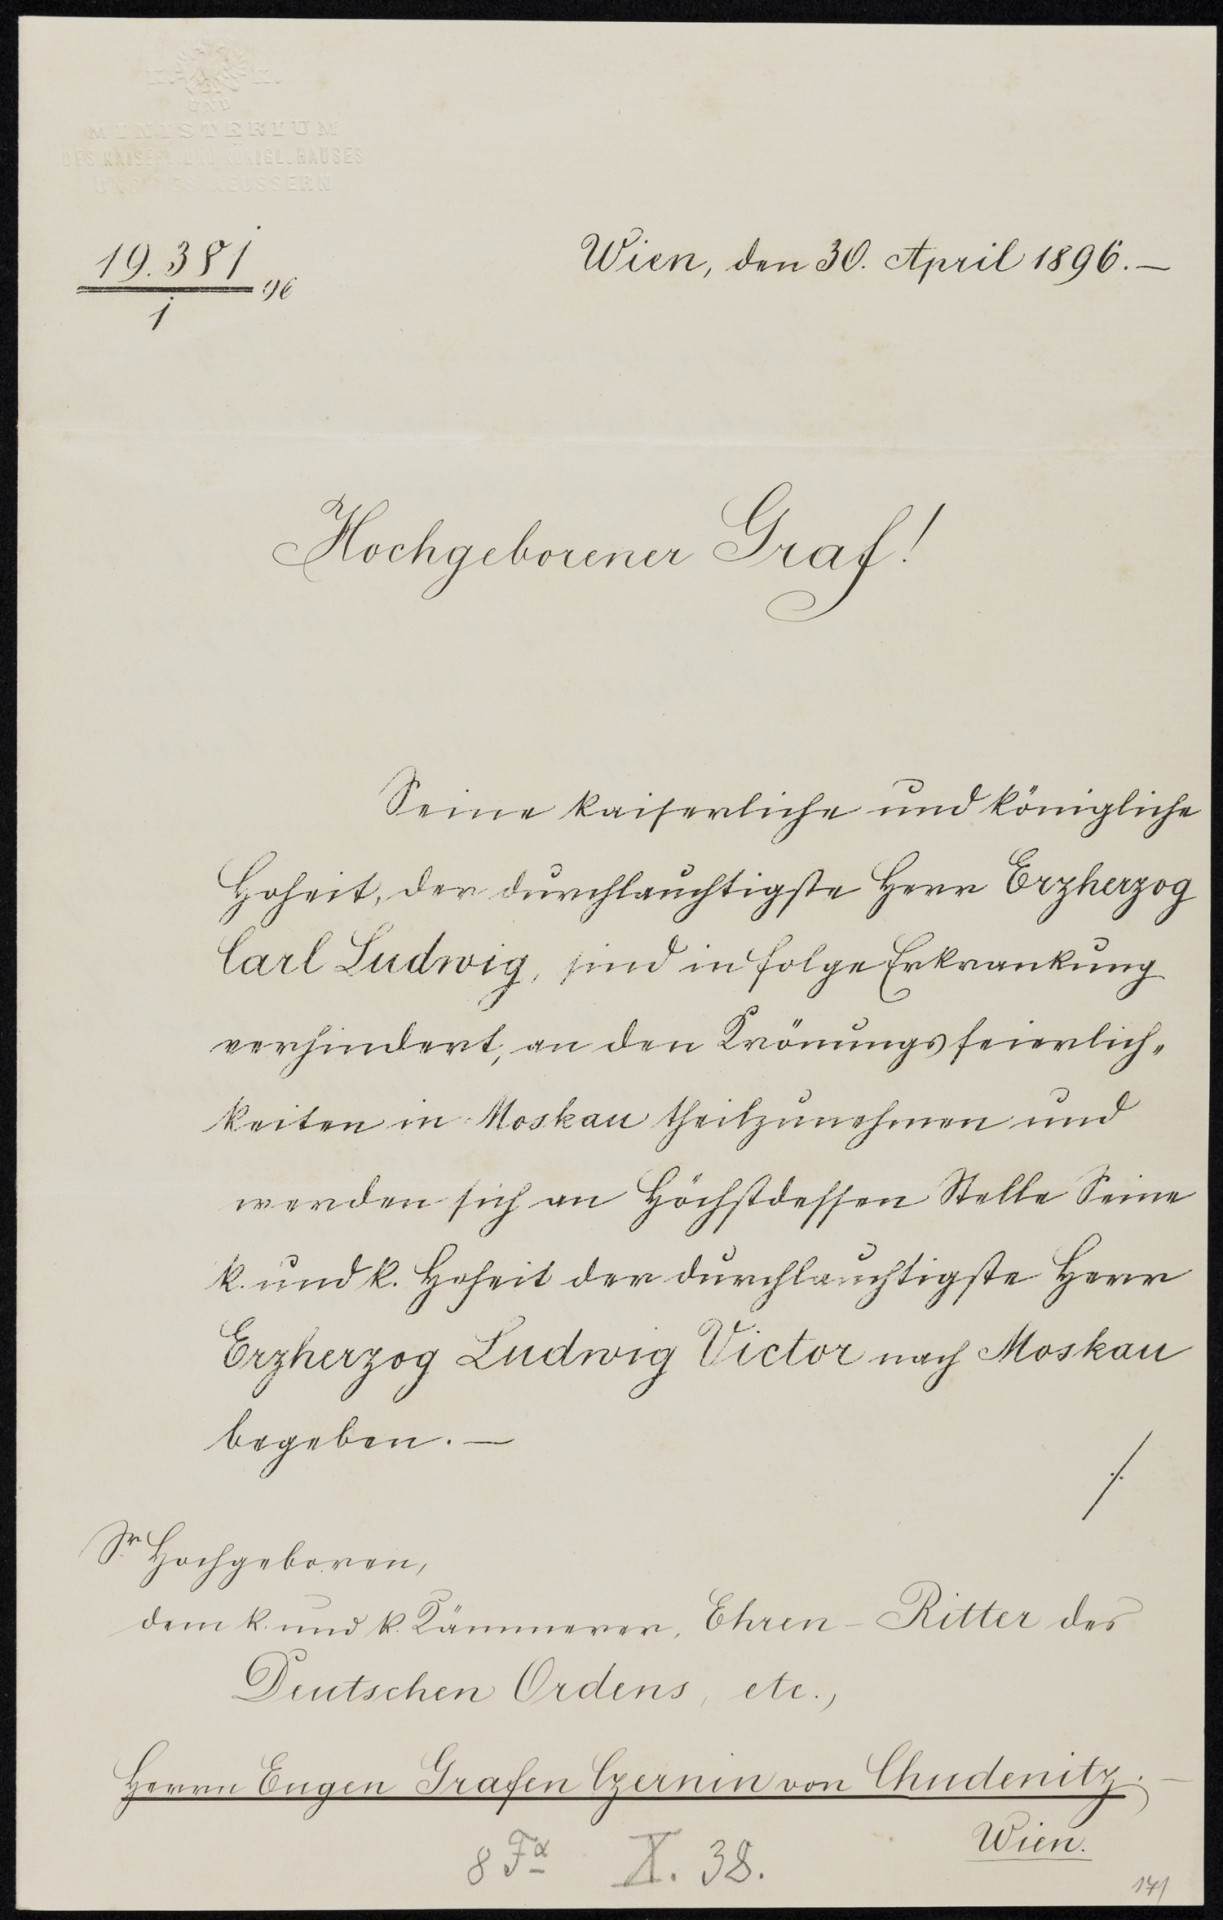 K. U. K.
UND
MINISTERIUM
DES KAISERL. UND KÖNIGL. HAUSES
UND DES AEUSSERN
19.381
1
96
Wien, den 30. April 1896. —
Hochgeborener Graf!
Seine kaiserliche und königliche
Hoheit, der durchlauchtigste Herr Erzherzog
Carl Ludwig, sind in folge Erkrankung
verhindert, an den Krönungsfeierlich-
keiten in Moskau theilzunehmen und
werden sich an Höchstdessen Stelle Seine
k. und k. Hoheit der durchlauchtigste Herr
Erzherzog Ludwig Victor nach Moskau
begeben. —
./.
Sr. Hochgeboren,
dem k. und k. Kämmerer, Ehren-Ritter des
Deutschen Ordens, etc.,
Herrn Eugen Grafen Czernin von Chudenitz. —
Wien.
8 Fα X. 38.
171